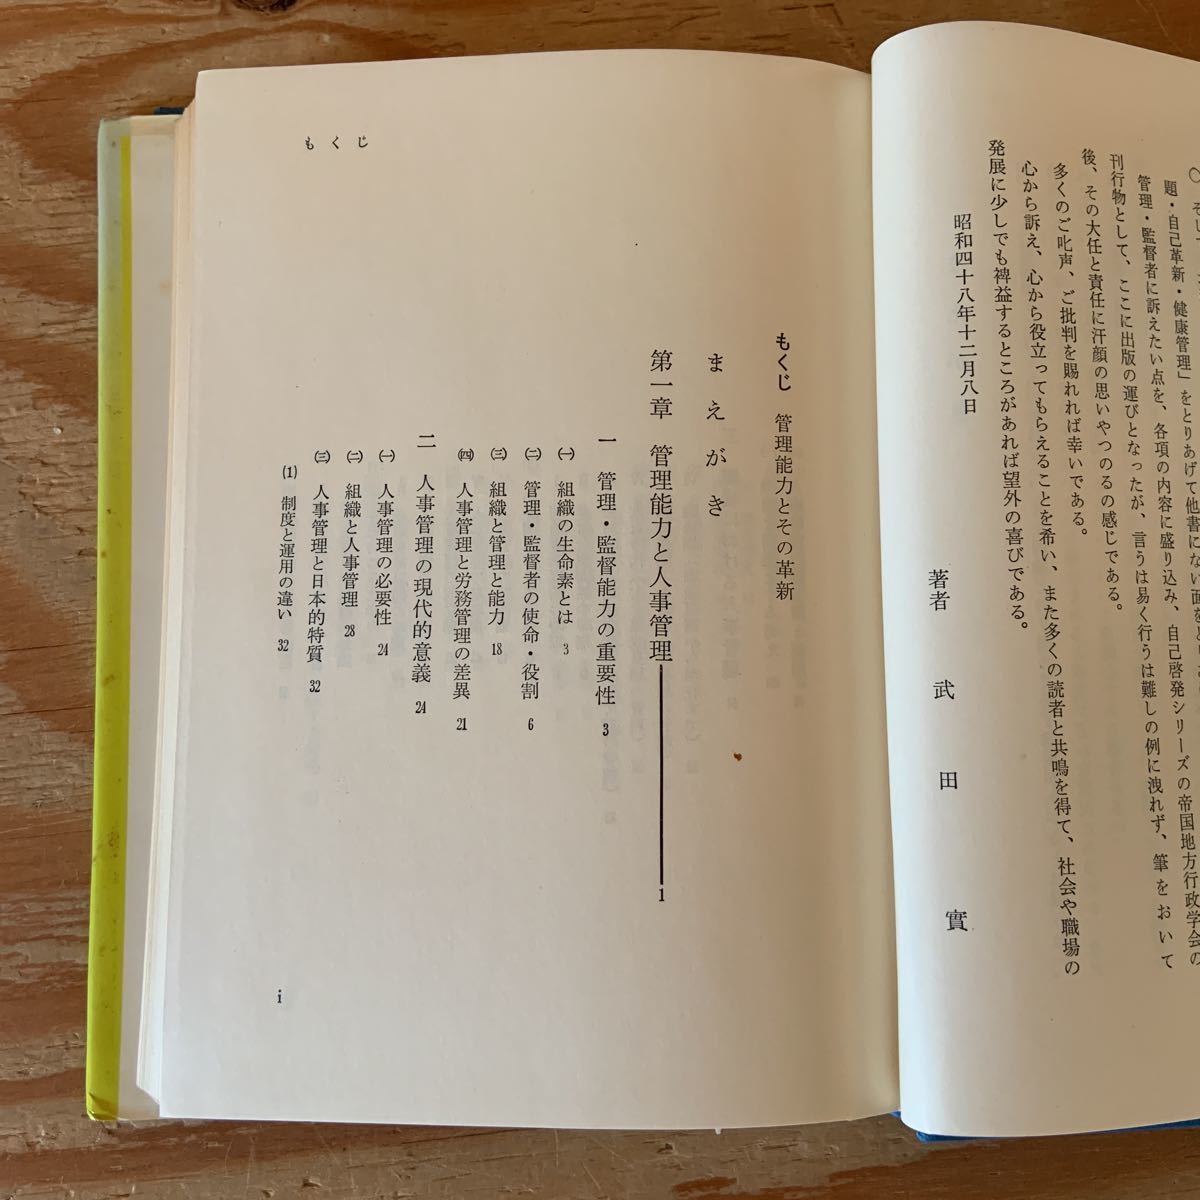 題・自己革新・健康管理」をとりあげて他書にない面をとり
管理・監督者に訴えたい点を、各項の内容に盛り込み、自己啓発シリーズの帝国地方行政学会の
刊行物として、ここに出版の運びとなったが、言うは易く行うは難しの例に洩れず、筆をおいて
後、その大任と責任に汗顔の思いやつのるの感じである。
多くのご叱声、ご批判を賜れれば幸いである。
心から訴え、心から役立ってもらえることを希い、また多くの読者と共鳴を得て、社会や職場の
発展に少しでも裨益するところがあれば望外の喜びである。
昭和四十八年十二月八日
著者 武田實
もくじ
もくじ 管理能力とその革新
まえがき
第一章 管理能力と人事管理 1
一 管理・監督能力の重要性 3
㈠ 組織の生命素とは 3
㈡ 管理・監督者の使命・役割 6
㈢ 組織と管理と能力 18
㈣ 人事管理と労務管理の差異 21
二 人事管理の現代的意義 24
㈠ 人事管理の必要性 24
㈡ 組織と人事管理 28
㈢ 人事管理と日本的特質 32
(1) 制度と運用の違い 32
i